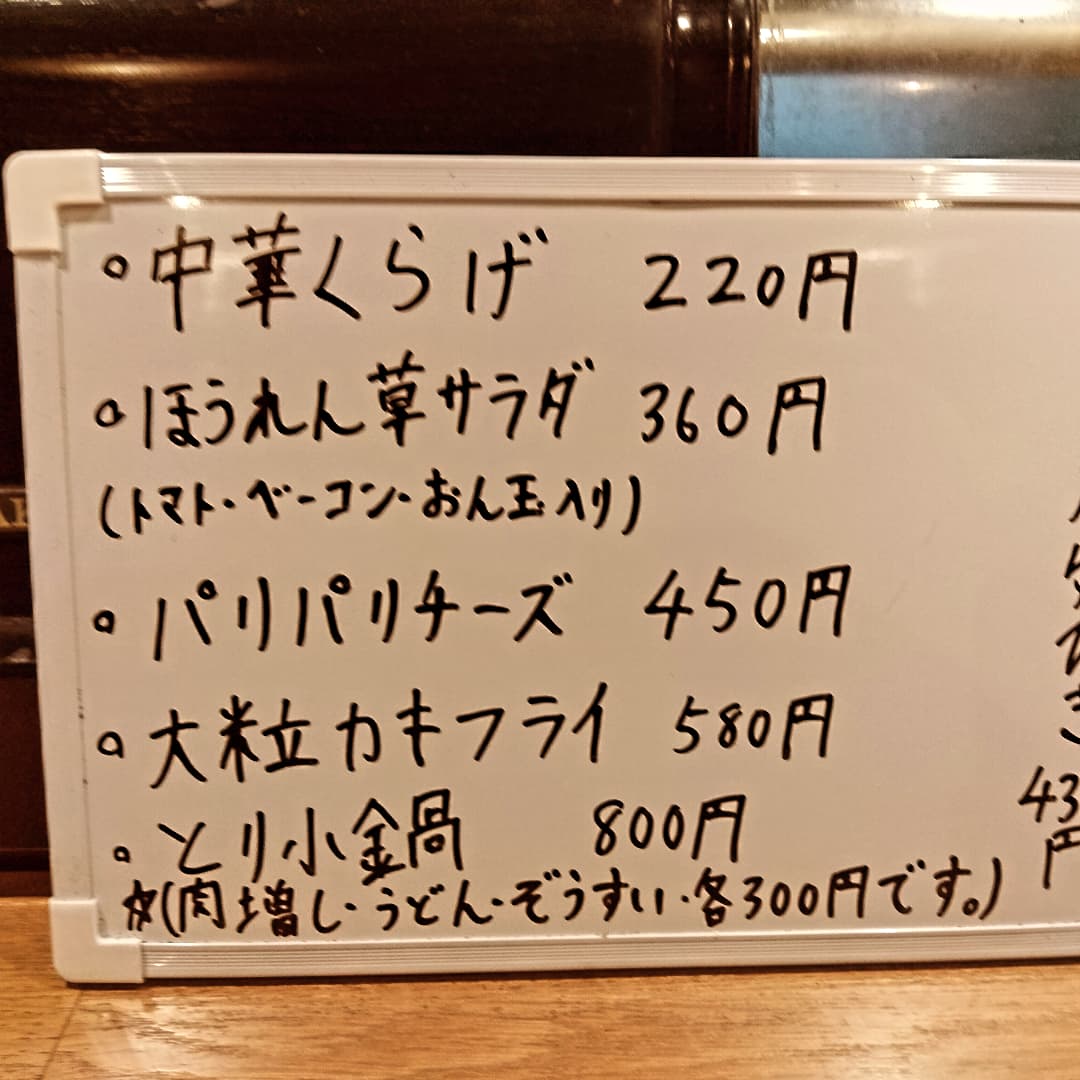 。中華くらげ 220円
。ほうれん草サラダ 360円
(トマト・ベーコン・おん玉入り)
。パリパリチーズ 450円
。大粒カキフライ 580円
。とり小鍋 800円
(肉増し・うどん・ぞうすい・各300円です。)
43
円